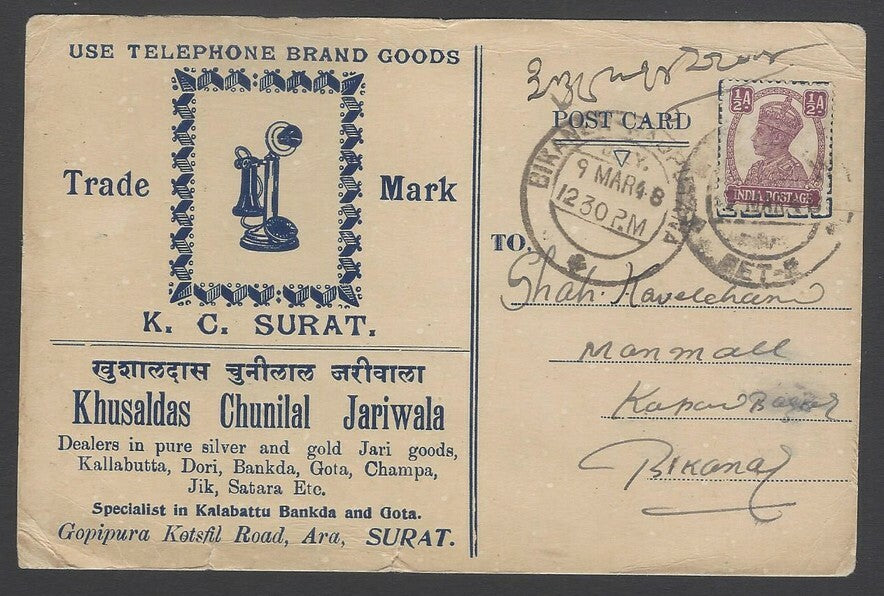 USE TELEPHONE BRAND GOODS
Trade Mark
K. C. SURAT.
खुशालदास चुनीलाल जरीवाला
Khusaldas Chunilal Jariwala
Dealers in pure silver and gold Jari goods,
Kallabutta, Dori, Bankda, Gota, Champa,
Jik, Satara Etc.
Specialist in Kalabattu Bankda and Gota.
Gopipura Kotsfil Road, Ara, SURAT.
POST CARD
½A ½A
INDIA POSTAGE
9 MAR 48
12 30 P.M
TO.
Shah.
Manmall
Bikaner